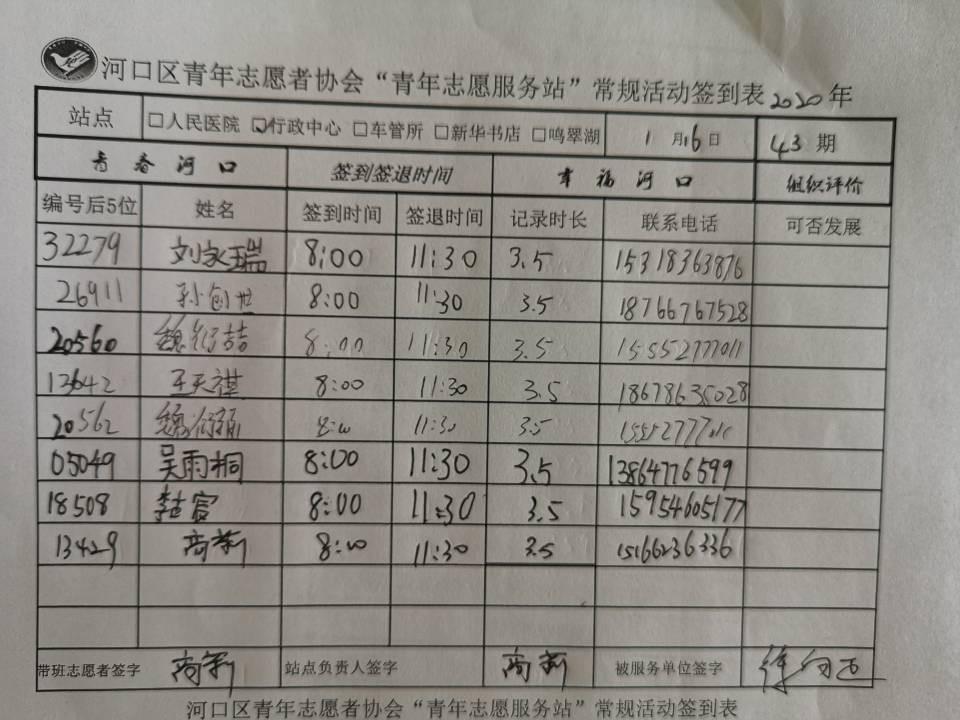 河口区青年志愿者协会“青年志愿服务站”常规活动签到表2020年
站点 □人民医院 ☑行政中心 □车管所 □新华书店 □鸣翠湖 1月16日 43期
青春河口 签到签退时间 幸福河口 组织评价
编号后5位 姓名 签到时间 签退时间 记录时长 联系电话 可否发展
32279 刘家瑞 8:00 11:30 3.5 15318363876
26911 孙创世 8:00 11:30 3.5 18766767528
20560 魏衍喆 8:00 11:30 3.5 15552777011
13642 王天祺 8:00 11:30 3.5 18678635028
20562 魏衍 8:00 11:30 3.5
05049 吴雨桐 8:00 11:30 3.5 13864776599
18508 李宦 8:00 11:30 3.5 15954605177
13429 商新 8:00 11:30 3.5 15166236336
带班志愿者签字 商新 站点负责人签字 商新 被服务单位签字
河口区青年志愿者协会“青年志愿服务站”常规活动签到表